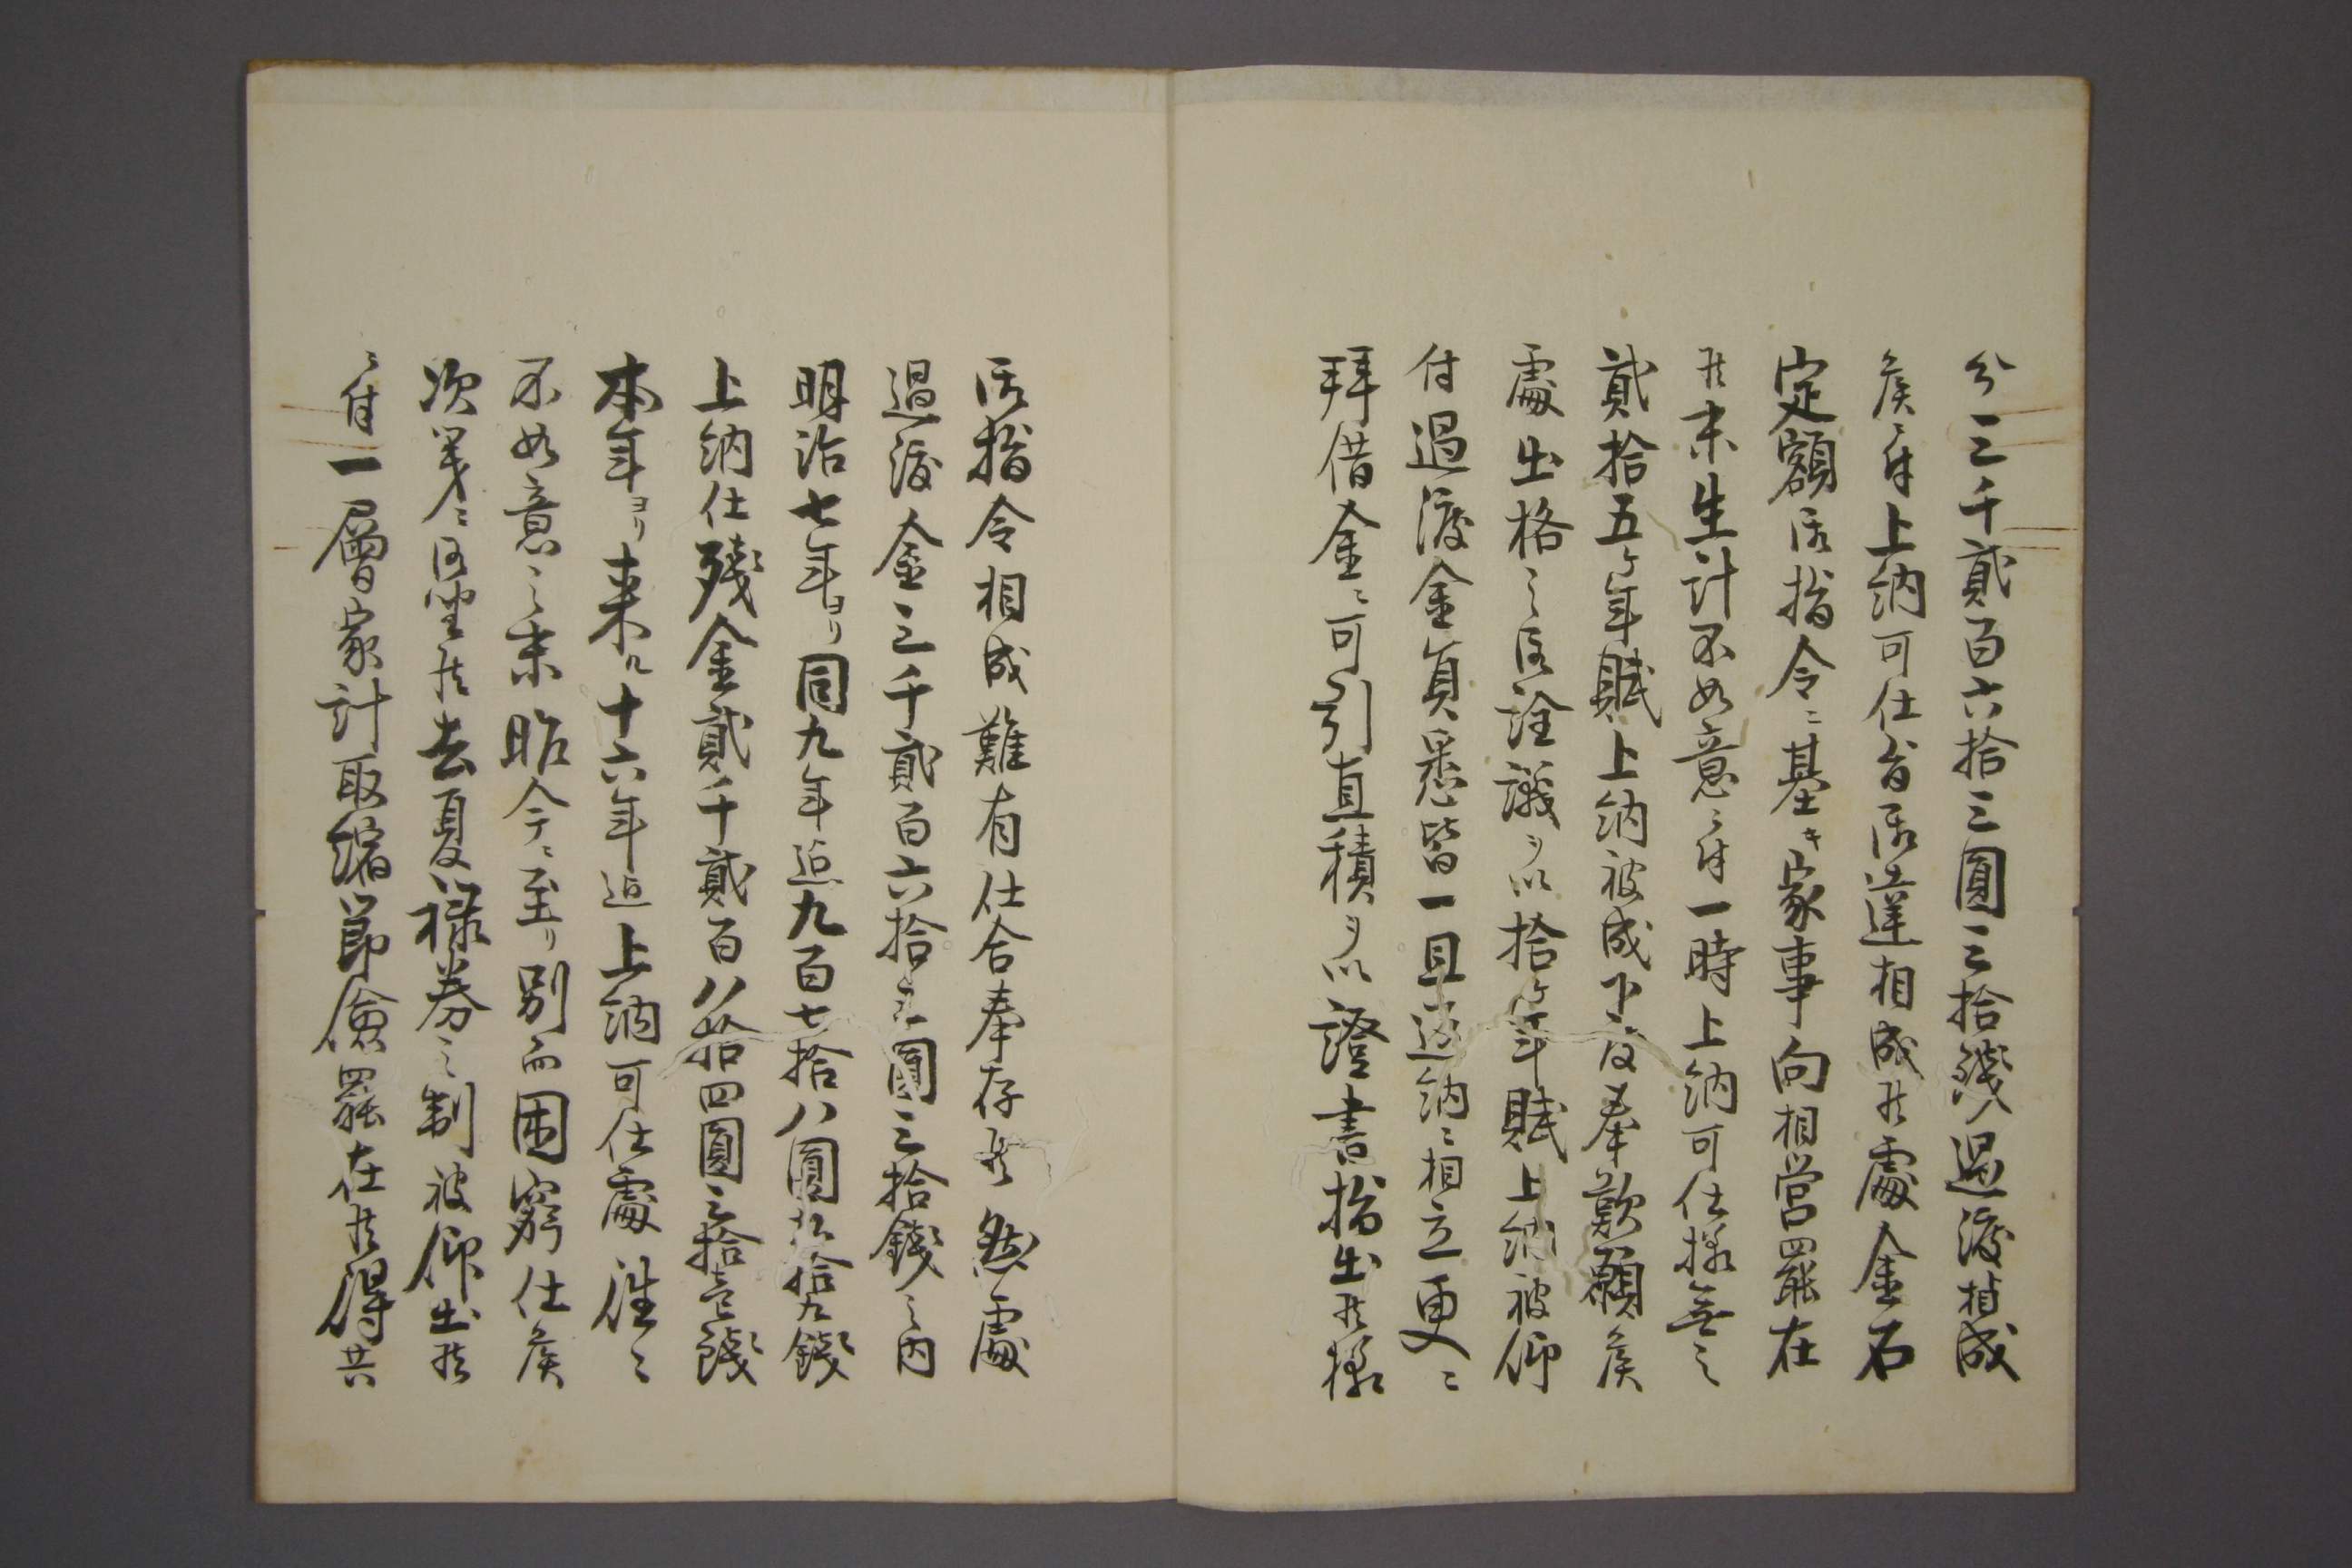 分三千貳百六拾三圓三拾錢過渡相成
候ニ付上納可仕旨御達相成候處金石
定額御指令ニ基キ家事向相営罷在
候末生計不如意ニ付一時上納可仕様無之
貳拾五ケ年賦上納被成下度奉歎願候
處出格之御詮議ヲ以拾ケ年賦上納被仰
付過渡金員悉皆一旦返納ニ相立更ニ
拝借金ニ可引直積ヲ以證書指出候様
御指令相成難有仕合奉存候然處
過渡金三千貳百六拾三圓三拾錢之内
明治七年ヨリ同九年迠九百七拾八圓九拾九錢
上納仕殘金貳千貳百八拾四圓三拾壱錢
本年ヨリ来ル十六年迠上納可仕處従之
不如意之末昨今ニ至リ別而困窮仕候
次第ニ御座候去夏禄券之制被仰出候
ニ付一層家計取縮節儉罷在候得共